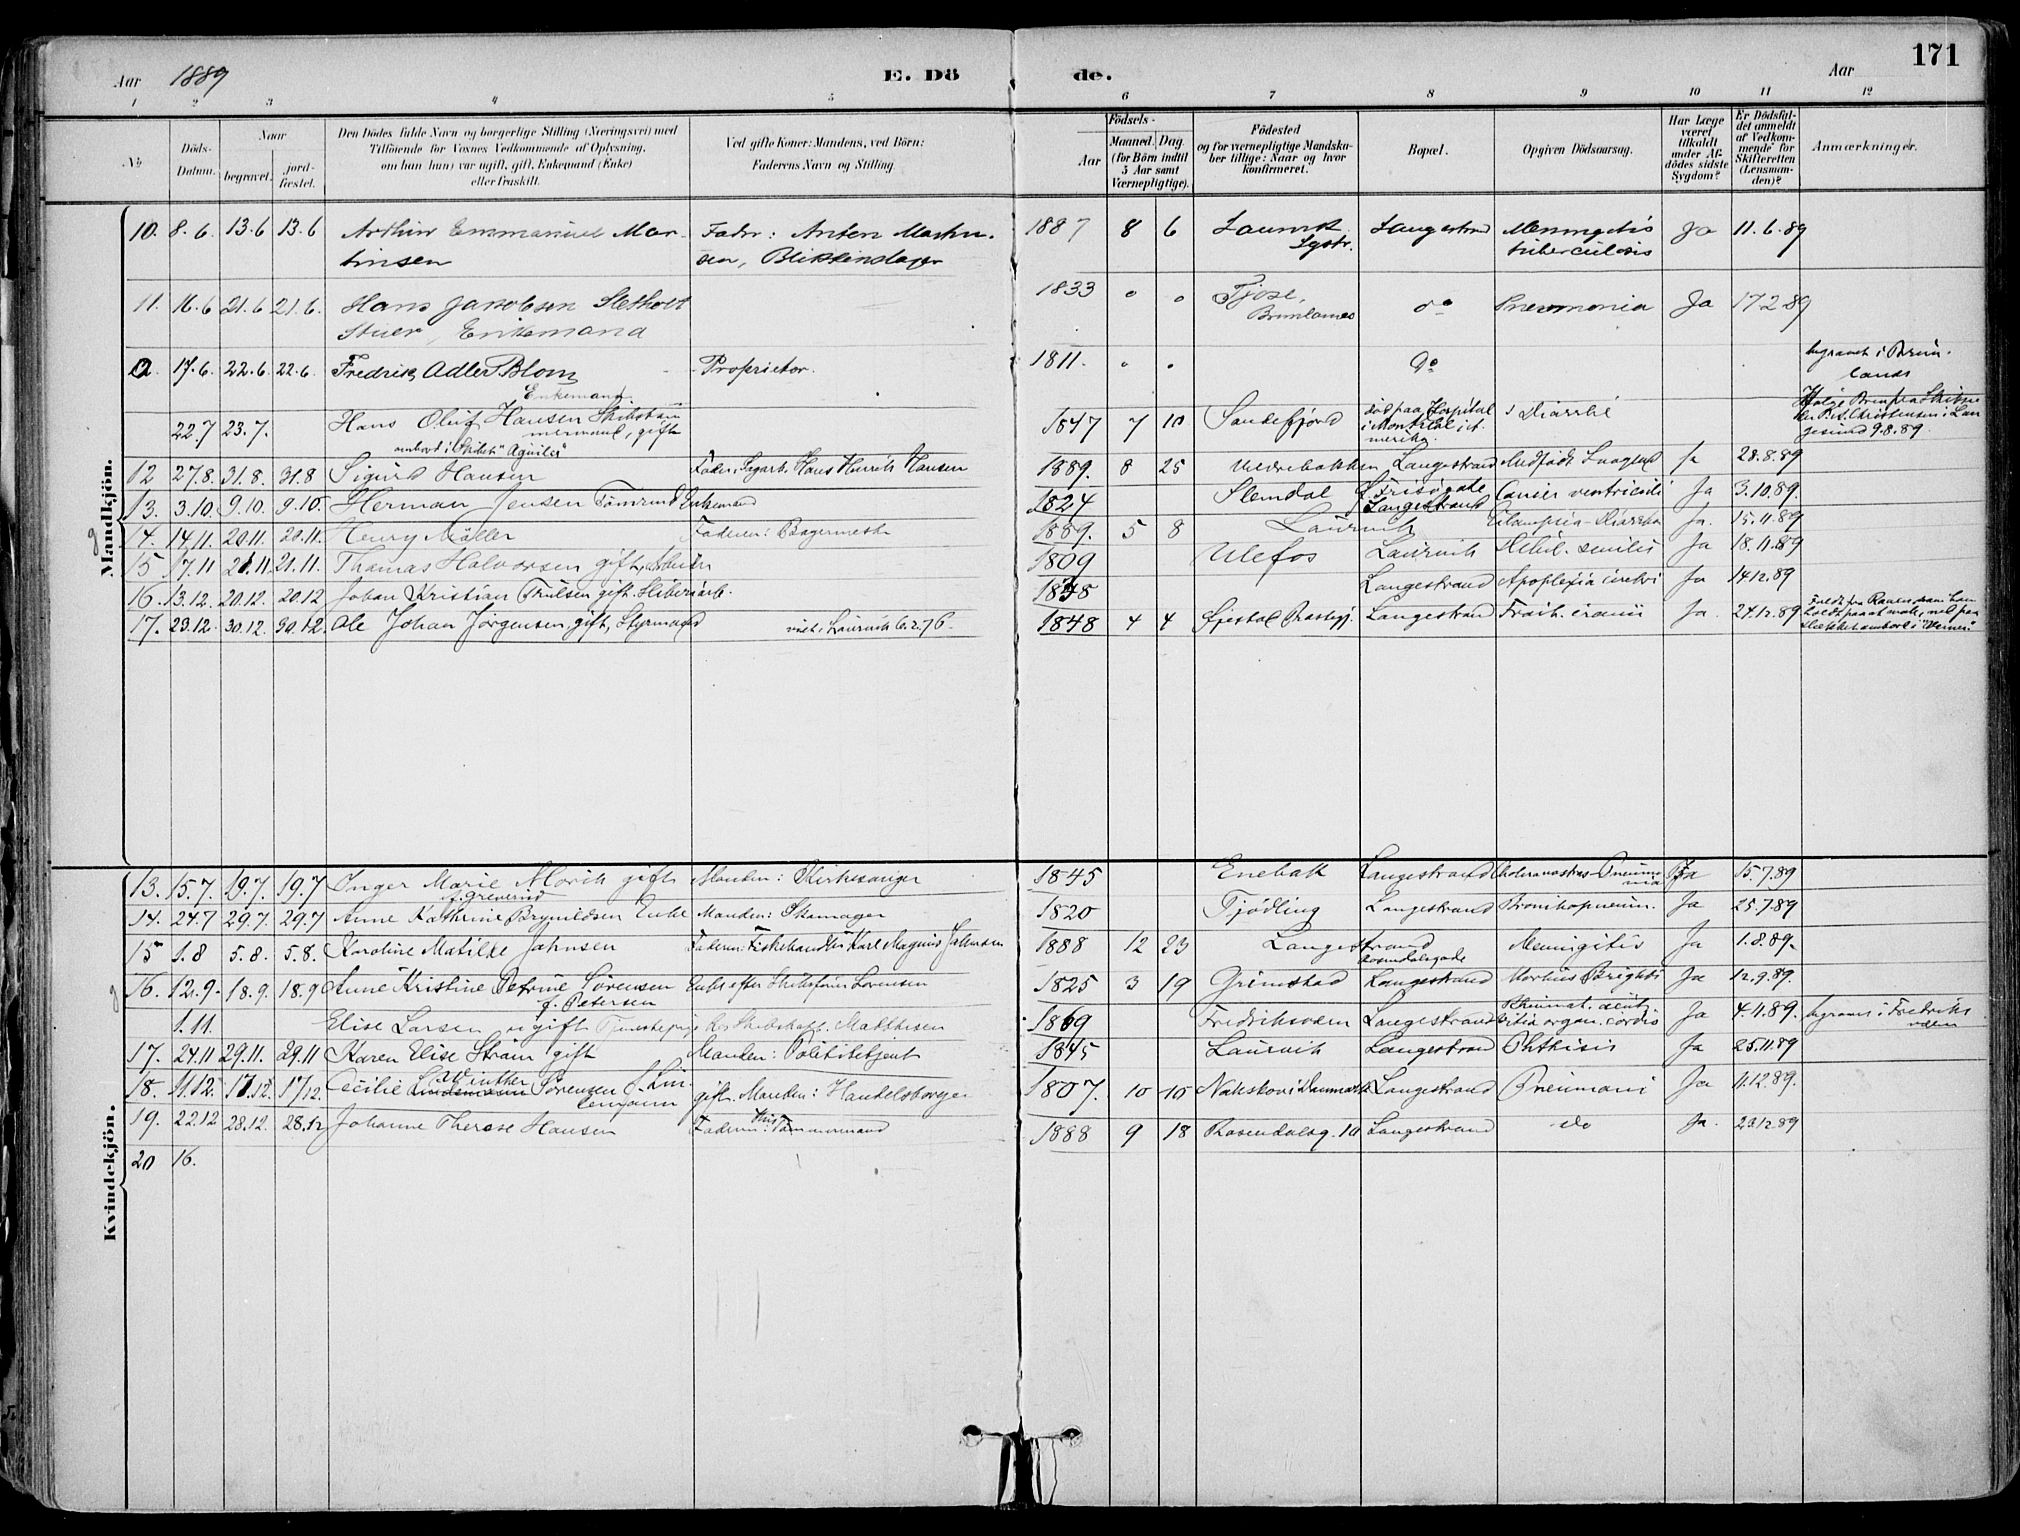 171
Aar 1889 E. Dö de. Aar
1 2 3 4 5 6 7 8 9 10 11 12
№
Döds-Datum.
Naar
begravet.
jordfæstet.
Den Dödes fulde Navn og borgerlige Stilling (Næringsvei) med
Tilföiende for Voxnes Vedkommende af Oplysning,
om han (hun) var ugift, gift, Enkemand (Enke)
eller fraskilt.
Ved gifte Koner: Mandens, ved Börn:
Faderens Navn og Stilling.
Födsels-
Aar
Maaned. Dag.
(for Börn indtil
5 Aar samt
Værnepligtige).
Födested
og for værnepligtige Mandska-
ber tillige: Naar og hvor
konfirmeret.
Bopæl.
Opgiven Dödsaarsag.
Har Læge
været
tilkaldt
under Af-
dödes sidste
Sygdom?
Er Dödsfal-
det anmeldt
af Vedkom-
mende for
Skifteretten
(Lensman-
den)?
Anmærkninger.
Mandkjön.
10. 8.6. 13.6 13.6 Arthur Emmanuel Mar- Fader: Anton Martin- 1887 8 6 Laurvik Langestrand Meningitis Ja 11.6.89
tinsen sen, Blikkenslager tuberculosis
11. 16.6 21.6 21.6. Hans Jakobsen Sletholt 1833 " " Tjose, do Pneumonia Ja 17 2 89
Stuer, Enkemand Brunlanes
17.6. 22.6. 22.6. Fredrik Adler Blom Proprietor. 1811. " " do begravet i Brun-
Enkemand. lanes
22.7 23.7. Hans Oluf Hansen 1847 7 10 Sandefjord död paa Hospital Diarrhé
gift i Montreal i A-
ombord i Skibet "Aquila" merika. gesund 9.8.89.
12 27.8. 31.8. 31.8 Sigurd Hansen Fader: Sagarb. Hans Henrik Hansen 1889. 8 25 Langestrand Medfödt Ja 28.8.89
13. 3.10. 9.10. 9.10. Herman Jensen Tömmermd Enkemand 1824 Slemdal Frisögade Langestrand Cancer ventriculi Ja 3.10.89.
14. 14.11. 20.11. 20.11. Henry Möller Faderen: Bagermester 1889. 5 8 Laurvik Eclampsia-Diarrhe Ja. 15.11.89
15 17.11 21.11. 21.11. Thomas Halvorsen gift, 1809 Ulefos Laurvik Debil. senilis Ja 18.11.89
16. 13.12. 20.12. 20.12 Johan Kristian Trulsen gift Skiberiarb. Langestrand Apoplexia cerebri Ja 14 12.89
17. 23.12. 30.12. 30.12. Ole Johan Jörgensen, gift, Styrmand viet i Laurvik 6.2.76. 1848 4 4 Langestrand Fract. cranii Ja. 24.12.89
Kvindekjön.
13. 15.7. 19.7. 19.7 Inger Marie Movik gift Manden: Kirkesanger 1845 Enebak Langestrand Pneumo- Ja 15.7.89
nia
14. 24.7 29.7. 29.7 Anne Kathrine Brynildsen Enke Manden: Skomager 1820 Tjödling Langestrand Bronchopneum. Ja 25.7.89
15 1.8 5.8. 5.8. Karoline Matilde Jahnsen Faderen: Fiskehandler Karl Magnus Jahnsen 1888 12 23 Langestrand Meningitis Ja 1.8.89.
Rosendalsgade
16. 12.9. 18.9. 18.9 Anne Kristine Petrine Sörensen Enke efter Skibsförer Sörensen 1825 3 19 Grimstad Langestrand Morbus Brightii Ja 12.9.89.
f. Petersen
1.11. Elise Larsen ugift Tjenestepige hos Skibskapt. Matthisen 1869 Fredriksværn Langestrand Rheumat. acut. vitia organ. cordis Ja 4.11.89. begraves i Fredriks-
værn
17. 24.11 29.11. 29.11 Karen Elise Ström gift Manden: Politibetjent 1845 Laurvik Langestrand Phthisis Ja 25.11.89
18. 11.12. 17.12. 17/12. Cecilie Winther Sörensen f. Lin- gift. Manden: Handelsborger 1807. 10 10 Nakskov i Danmark Langestrand Pneumoni Ja 11.12.89.
demann
19. 22.12 28.12. 28.12 Johanne Therese Hansen Faderen: Tömmermand 1888 9 18 Rosendalsg. 10 Langestrand do Ja. 23.12.89
20 16.